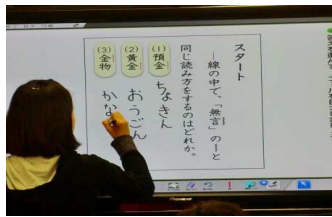 スタート
―線の中で、「無言」の―と
同じ読み方をするのはどれか。
(1) 預金 ちょきん
(2) 黄金 おうごん
(3) 金物 かな